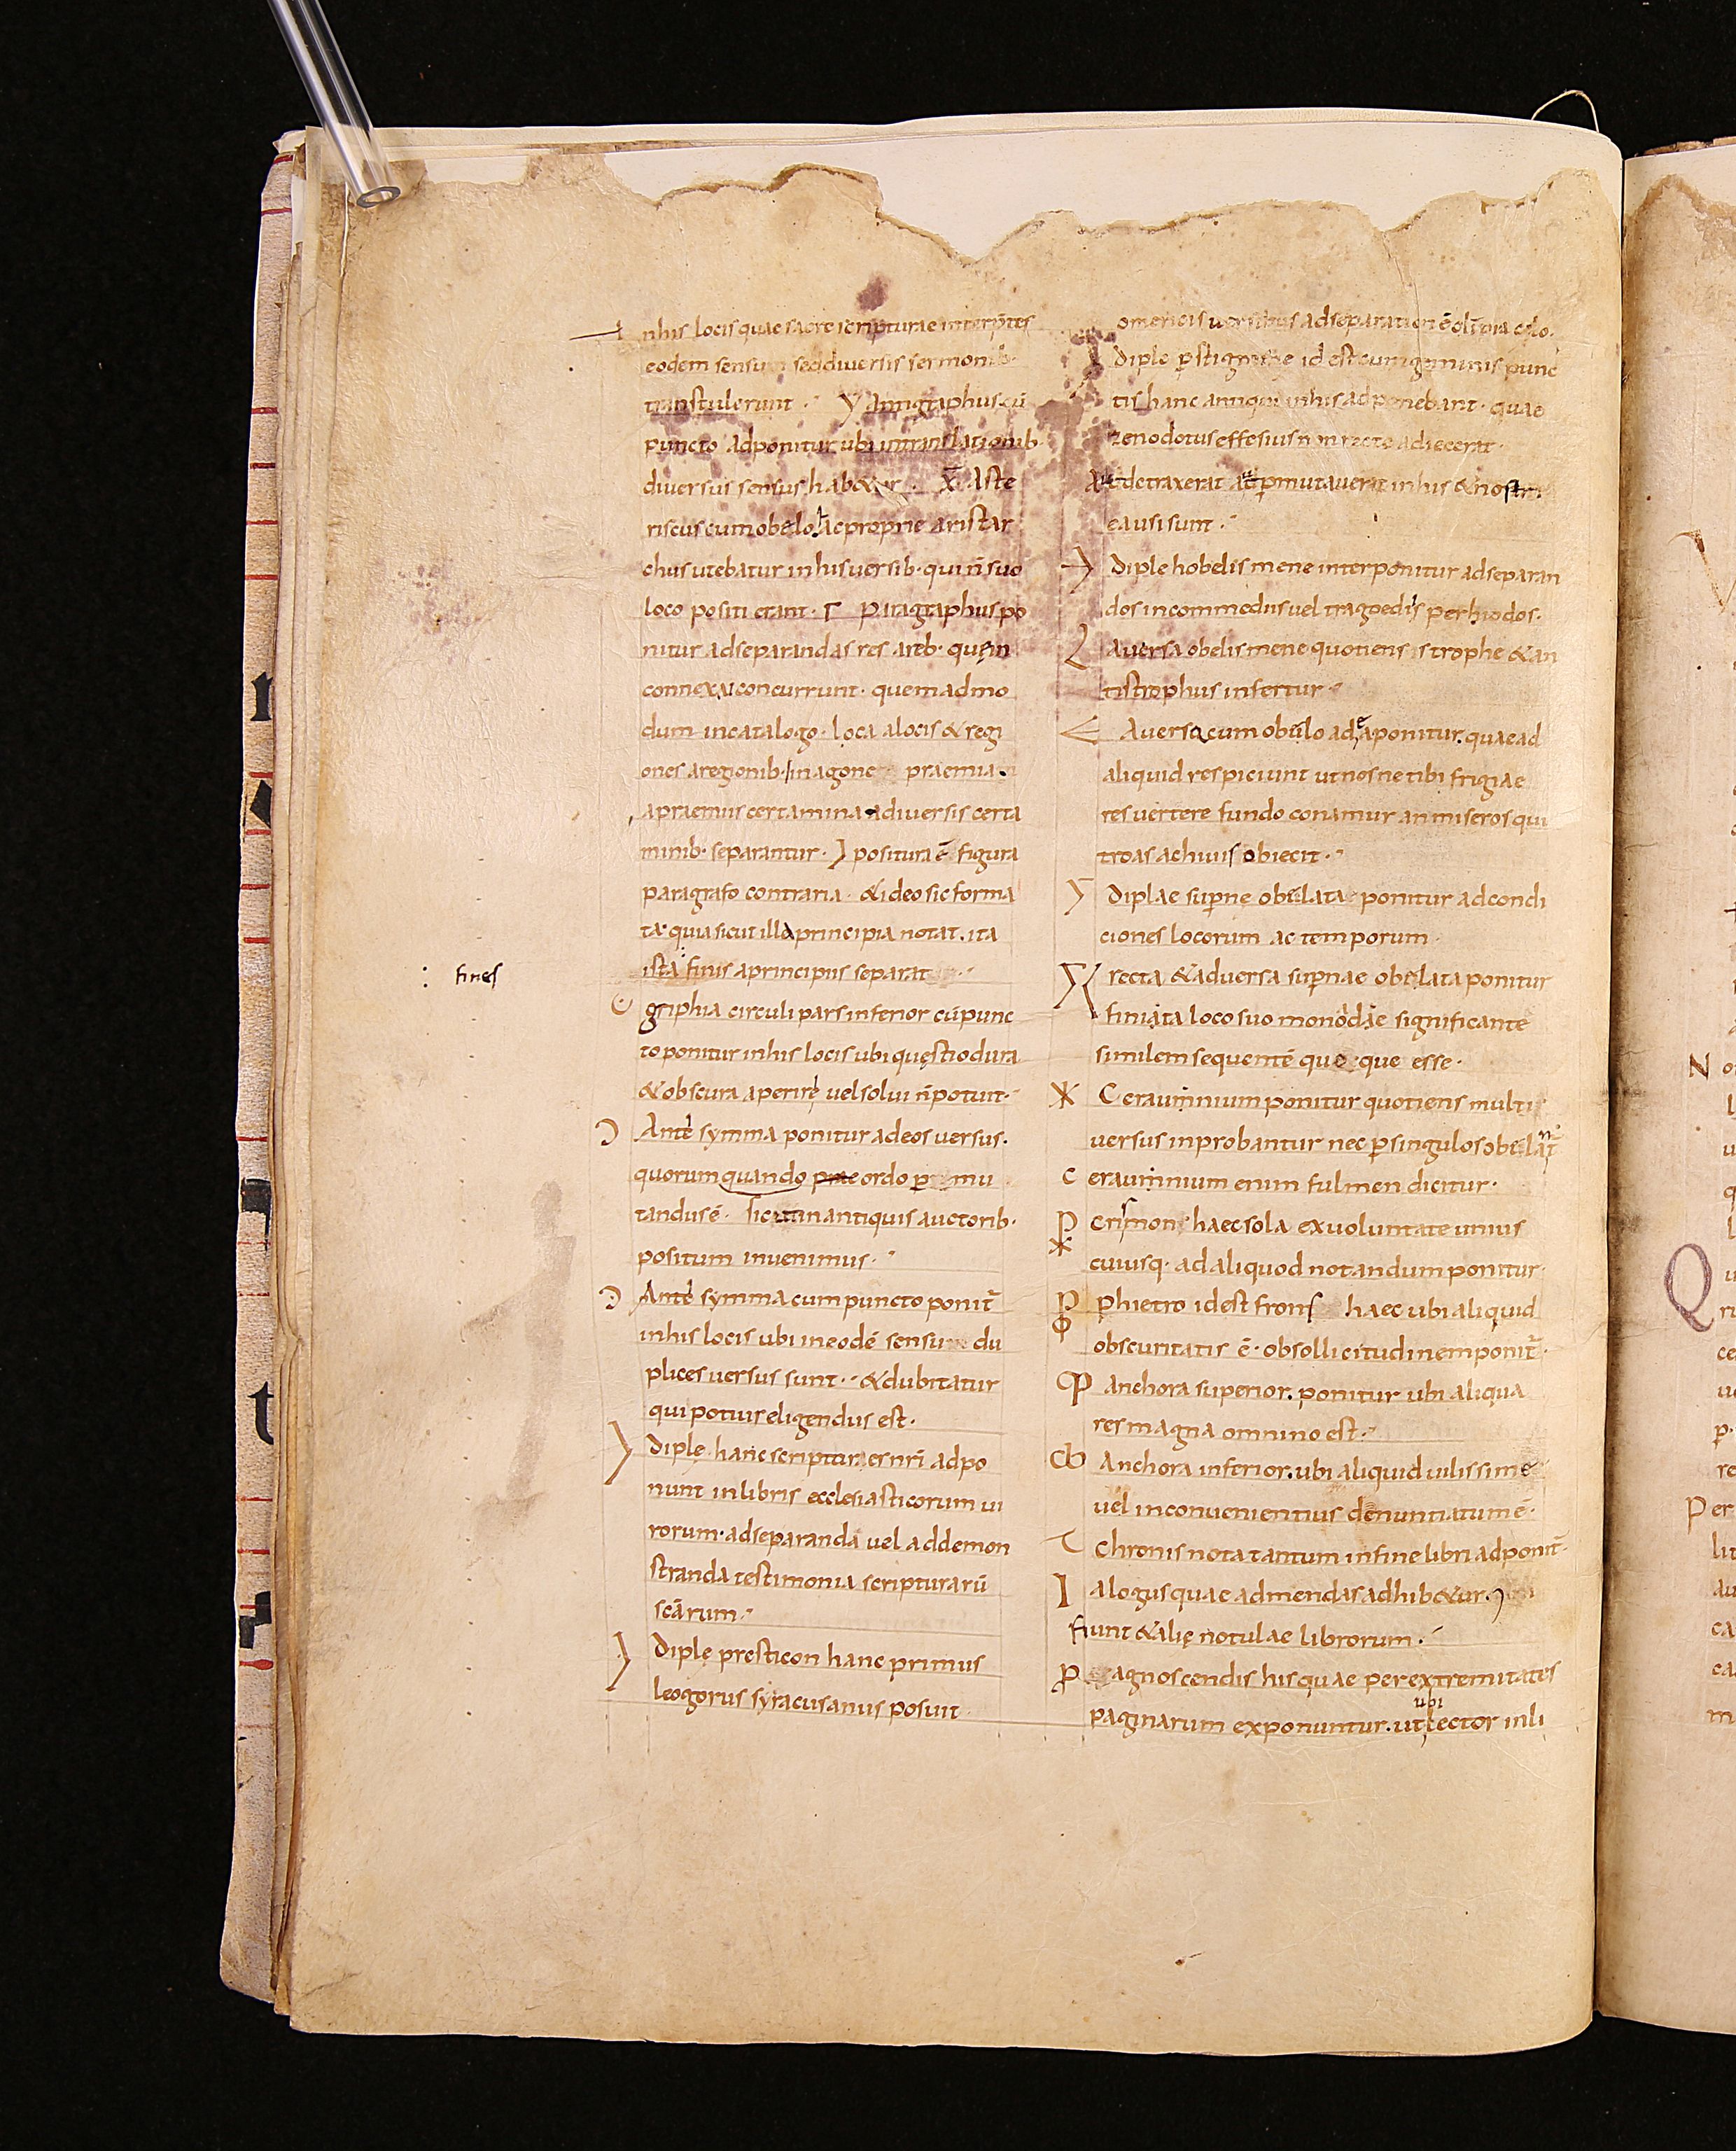 nhis locis quae sacre scripturae interp̄tes
eodem sensum sed diversis sermonib·
transtulerunt · Antigraphus cū
puncto adponitur ubi intranslationib·
diversus sensus hab&ur · Aste
riscus cum obelo hac proprie aristar
chus utebatur in his versib· qui n̄ suo
loco positi erant · Γ Paragraphus po
nitur adseparandas res areb· quę in
connexu concurrunt · quemadmo
dum incatalogo · loca alocis & regi
ones aregionib· in agone praemia
apraemiis certamina adiversis certa
minib· separantur · positura ē figura
paragrafo contraria · & ideo sic forma
ta· quia sicut illa principia notat · ita
ista finis aprincipiis separat
: fines
griphia circuli pars inferior cū punc
to ponitur inhis locis ubi quęstio dura
& obscura aperire vel solvi n̄ potuit·
Ante symma ponitur ad eos versus·
quorum quando prae ordo p mu
tandus ē · sicut in antiquis auctorib·
positum invenimus ·
Ante symma cum puncto ponit̄
inhis locis ubi in eodē sensu du
plices versus sunt · & dubitatur
qui potius eligendus est·
Diplę hanc scriptores nr̄i adpo
nunt in libris ecclesiasticorum vi
rorum · adseparanda vel ad demon
stranda testimonia scripturarū
scārum ·
Diplę presticon hanc primus
leogorus syracusanus posuit
omericis versibus adseparation
Diple p stigmene id est cum geminis punc
tis hanc antiqui inhis adponebant · quae
zenodotus effesius non recte adiecerat ·
Aut detraxerat aut pmutaverat in his & nostri
ea usi sunt ·
Diple hobelismene interponitur adseparan
dos in commediis vel tragoediis perhiodos·
Aversa obelismene quotiens strophe & an
tistrophus infertur
Aversa cum obelo ad ea ponitur quae ad
aliquid respiciunt ut nosne tibi frigiae
res vertere fundo conamur an miseros qui
troas achivis obiecit ·
Diplae sup̄ne obelata ponitur ad condi
ciones locorum ac temporum ·
recta & adversa sup̄nae obelata ponitur
finiata loco suo monodiae significante
similem sequentē quoque esse ·
Ceraunnium ponitur quotiens multi
versus inprobantur nec p singulos obelant̄
ceraunnium enim fulmen dicitur ·
Crismon haec sola exvoluntate unius
cuiusq· ad aliquod notandum ponitur·
Phietro id est frons haec ubi aliquid
obscuritatis ē · obsollicitudinem ponit̄ ·
Anchora superior · ponitur ubi aliqua
res magna omnino est ·
Anchora inferior · ubi aliquid vilissime
vel inconvenientius denuntiatum ē ·
Chronis nota tantum in fine libri adponit̄ ·
alogus quae ad mendas adhib&ur ·
fiunt & alię notulae librorum ·
P agnoscendis his quae per extremitates
ubi
paginarum exponuntur · ut lector in li